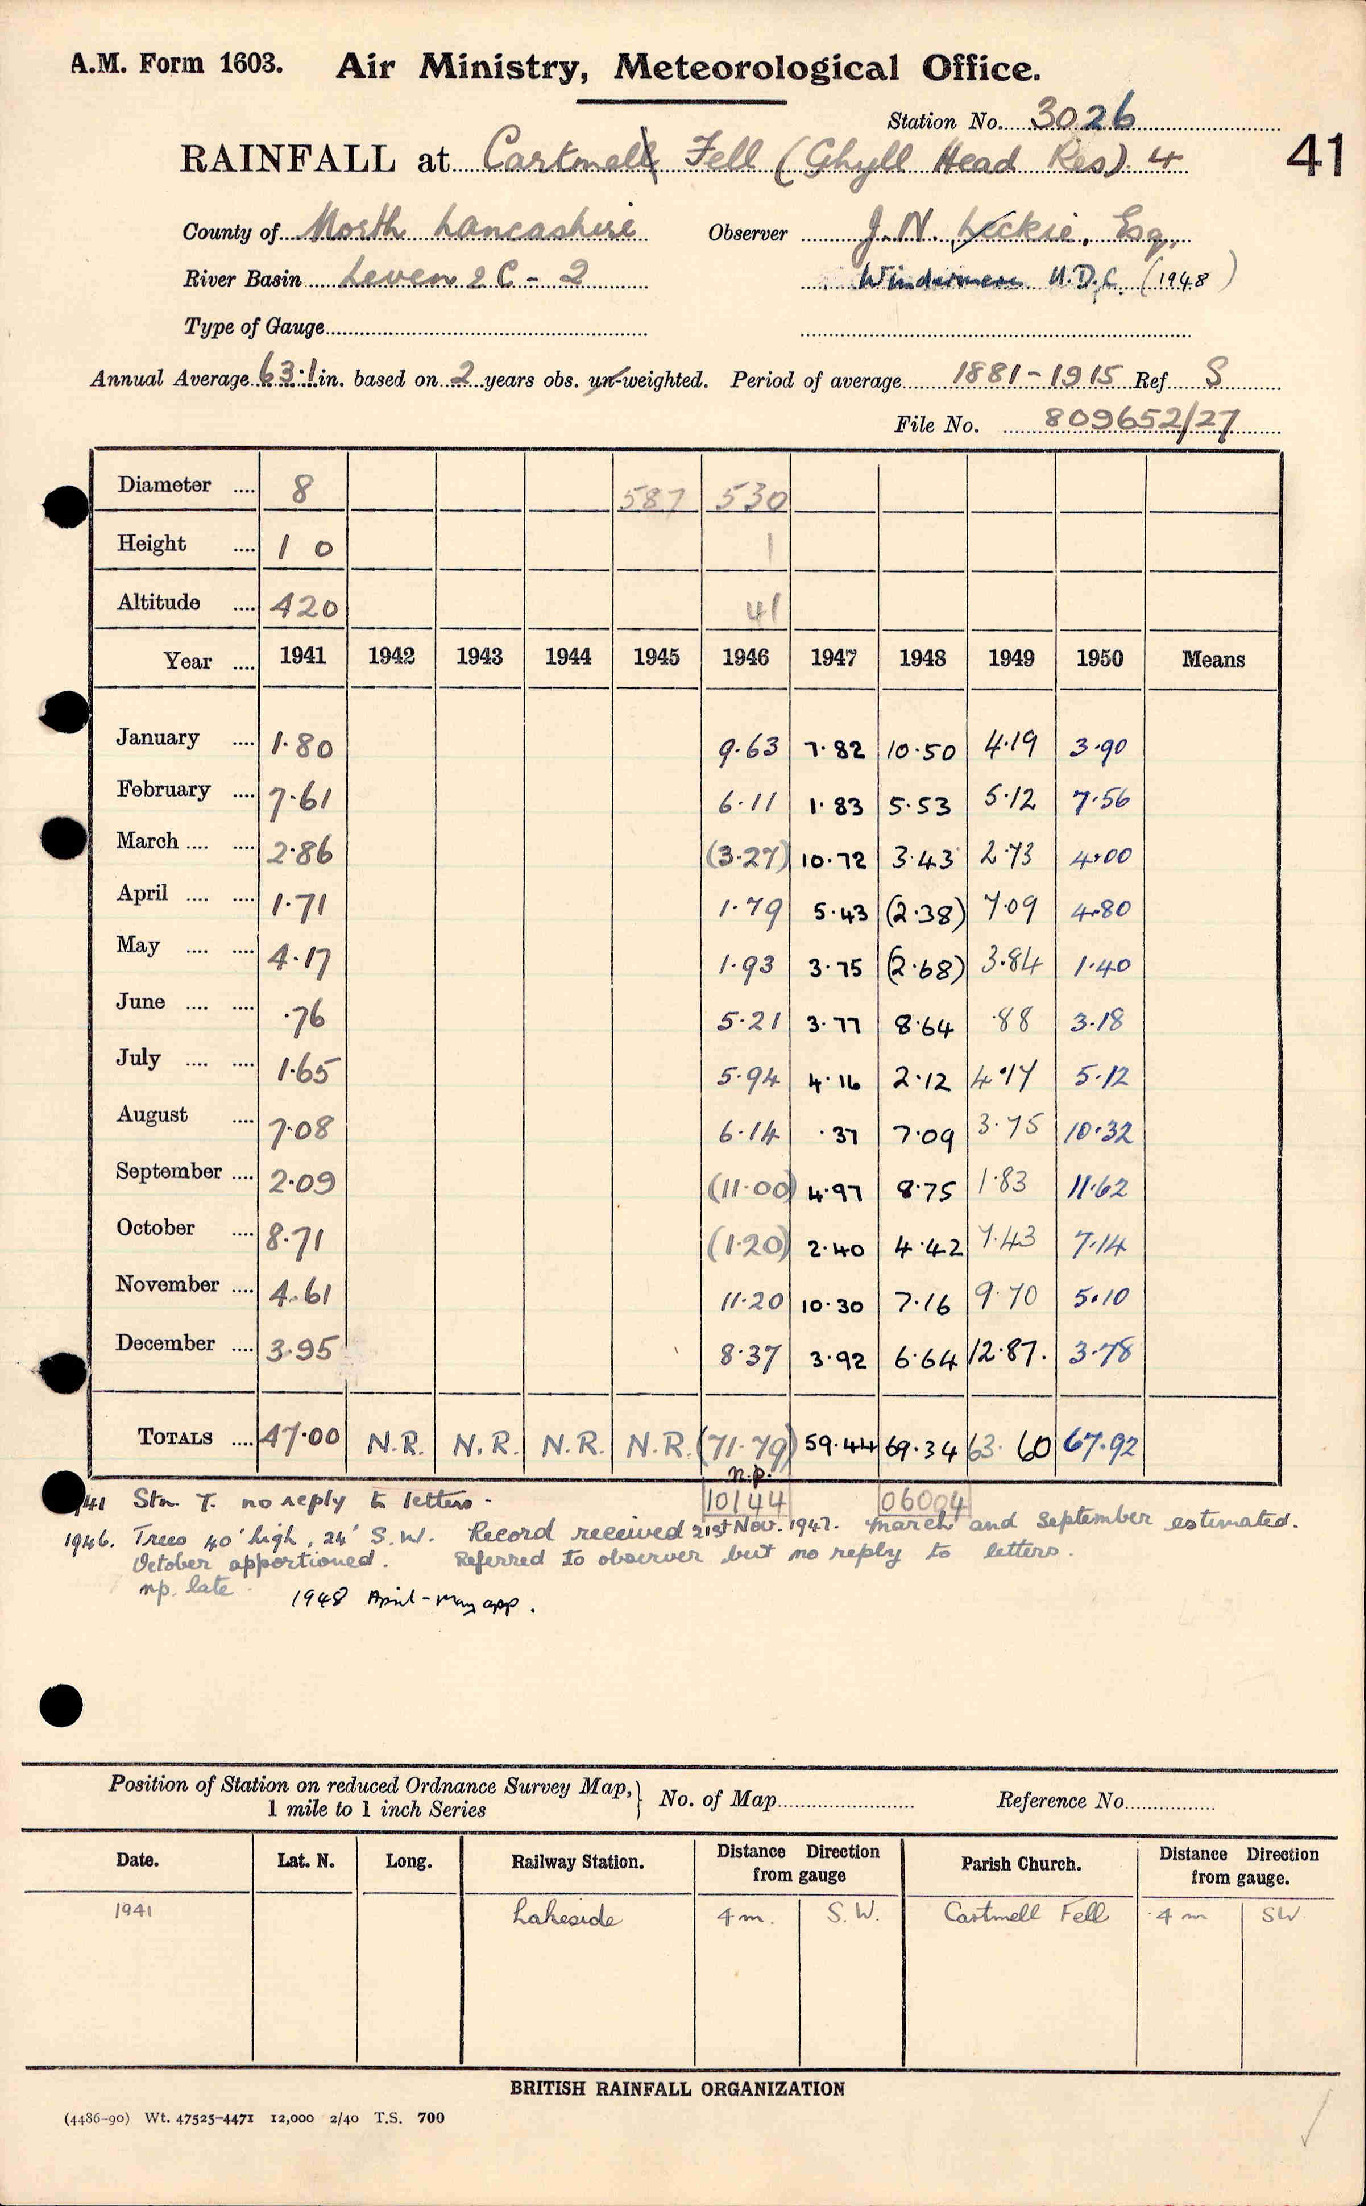 A.M. Form 1603. Air Ministry, Meteorological Office.
Station No. 3026
RAINFALL at Cartmell Fell (Ghyll Head Res). 4
41
County of North Lancashire Observer J. N. Leckie, Esq.
River Basin Leven & C - 2 Windermere U.D.C. (1948)
Type of Gauge
Annual Average 63.1 in. based on 2 years obs. un-weighted. Period of average 1881-1915 Ref S
File No. 809652/27
Diameter .... 8 587 530
Height .... 1 0 1
Altitude .... 420 41
Year .... 1941 1942 1943 1944 1945 1946 1947 1948 1949 1950 Means
January .... 1.80 9.63 7.82 10.50 4.19 3.90
February .... 7.61 6.11 1.83 5.53 5.12 7.56
March .... .... 2.86 (3.27) 10.72 3.43 2.73 4.00
April .... .... 1.71 1.79 5.43 (2.38) 7.09 4.80
May .... .... 4.17 1.93 3.75 (2.68) 3.84 1.40
June .... .... .76 5.21 3.77 8.64 .88 3.18
July .... .... 1.65 5.94 4.16 2.12 4.17 5.12
August .... 7.08 6.14 .37 7.09 3.75 10.32
September .... 2.09 (11.00) 4.97 8.75 1.83 11.62
October .... 8.71 (1.20) 2.40 4.42 7.43 7.14
November .... 4.61 11.20 10.30 7.16 9.70 5.10
December .... 3.95 8.37 3.92 6.64 12.87. 3.78
TOTALS .... 47.00 N.R. N.R. N.R. N.R. (71.79) 59.44 69.34 63.60 67.92
n.p.
10144 06004
1941 Stn. T. no reply to letters.
1946. Trees 40' high, 24' S.W. Record received 21st Nov. 1947. March and September estimated.
October apportioned. Referred to observer but no reply to letters.
n.p. late 1948 April-May app.
Position of Station on reduced Ordnance Survey Map, 1 mile to 1 inch Series } No. of Map Reference No.
Date. Lat. N. Long. Railway Station. Distance Direction from gauge Parish Church. Distance Direction from gauge.
1941 Lakeside 4 m. S.W. Cartmell Fell 4 m SW
BRITISH RAINFALL ORGANIZATION
(4486-90) Wt. 47525-4471 12,000 2/40 T.S. 700